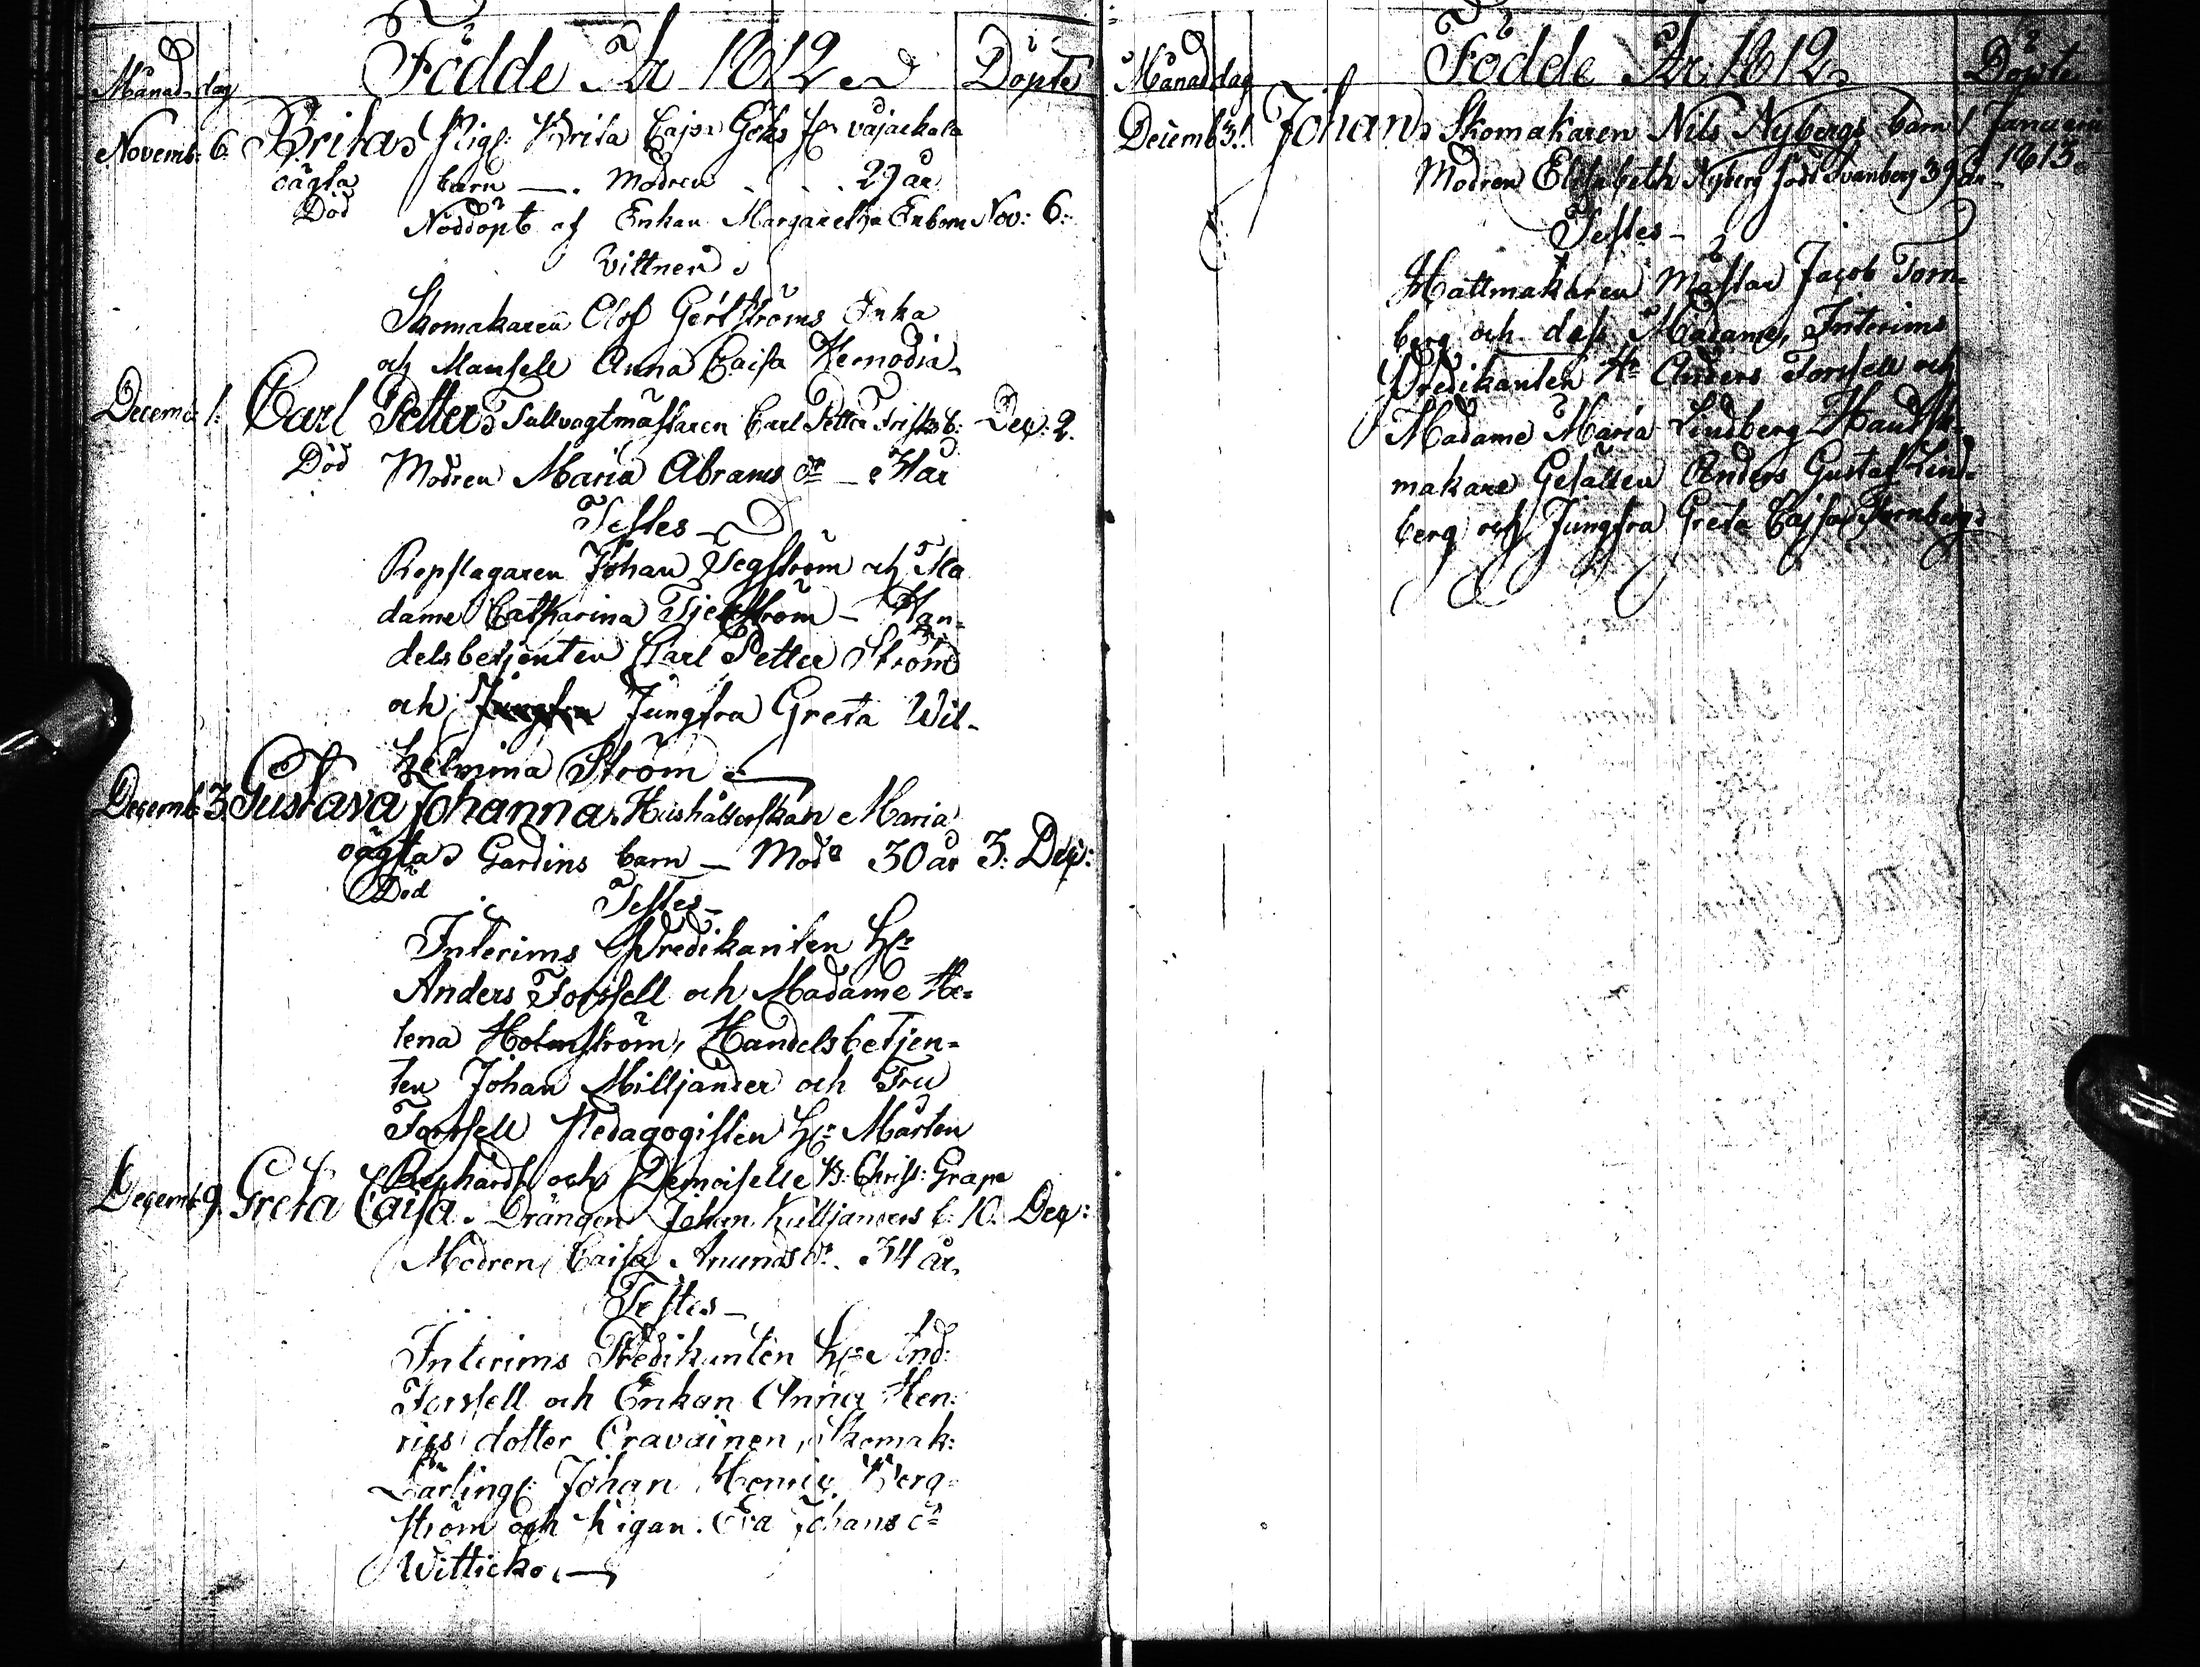 Månad dag Födde År 1812 Döpte
Novemb: 6. Brita Pig: Brita Cajsa
oägta barn — Modren 29 år
Död
Nöddöpt af Enkan Margaretha Enbom Nov: 6:
Vittnen
Skomakaren Olof Gertströms Enka
och Mamsell Anna Caisa
Decemb: 1. Carl Petter Tullvagtmästaren Carl Petter b: Dec: 2.
Död Modren Maria Abrams dr
Testes
Repslagaren Johan Segström och Ma
dame Catharina — Han-
delsbetjenten Carl Petter Ström
och Jungfru Greta Wil-
helmina Ström
Decemb 3. Gustava Johanna. Hushållerskan Maria
oägta Gardins barn — Mod: 30 år 3: Dec:
Död
Testes
Interims Predikanten Hr
Anders Forssell och Madame He-
lena Holmström, Handelsbetjen-
ten Johan Milljander och Fru
Forssell Pedagogisten Hr Mårten
och Demoiselle B: Christ: Grape
Decemb 9. Greta Caisa. Drängen Johan Kulljanders b: 10. Dec:
Modren Caisa Anunds dr. 34 år.
Testes
Interims Predikanten Hr And:
Forssell och Enkan Anna Hen:
rics dotter Cravainen, Skomak:
Lärling: Johan Henric Berg-
ström och Pigan. Eva Johans dr
Witticko
Månad dag Födde År 1812 Döpte
Decemb 31. Johan Skomakaren Nils Nybergs barn 1 Januarii
Modren Elisabeth Nyberg född Svanberg 39 år 1813.
Testes
Hattmakaren Mästar Jacob Torn-
berg och dess Madame, Interims
Predikanten Hr Anders Forssell och
Madame Maria Lindberg Handsk-
makare Gesällen Anders Gustaf Lind-
berg och Jungfru Greta Cajsa Tornberg